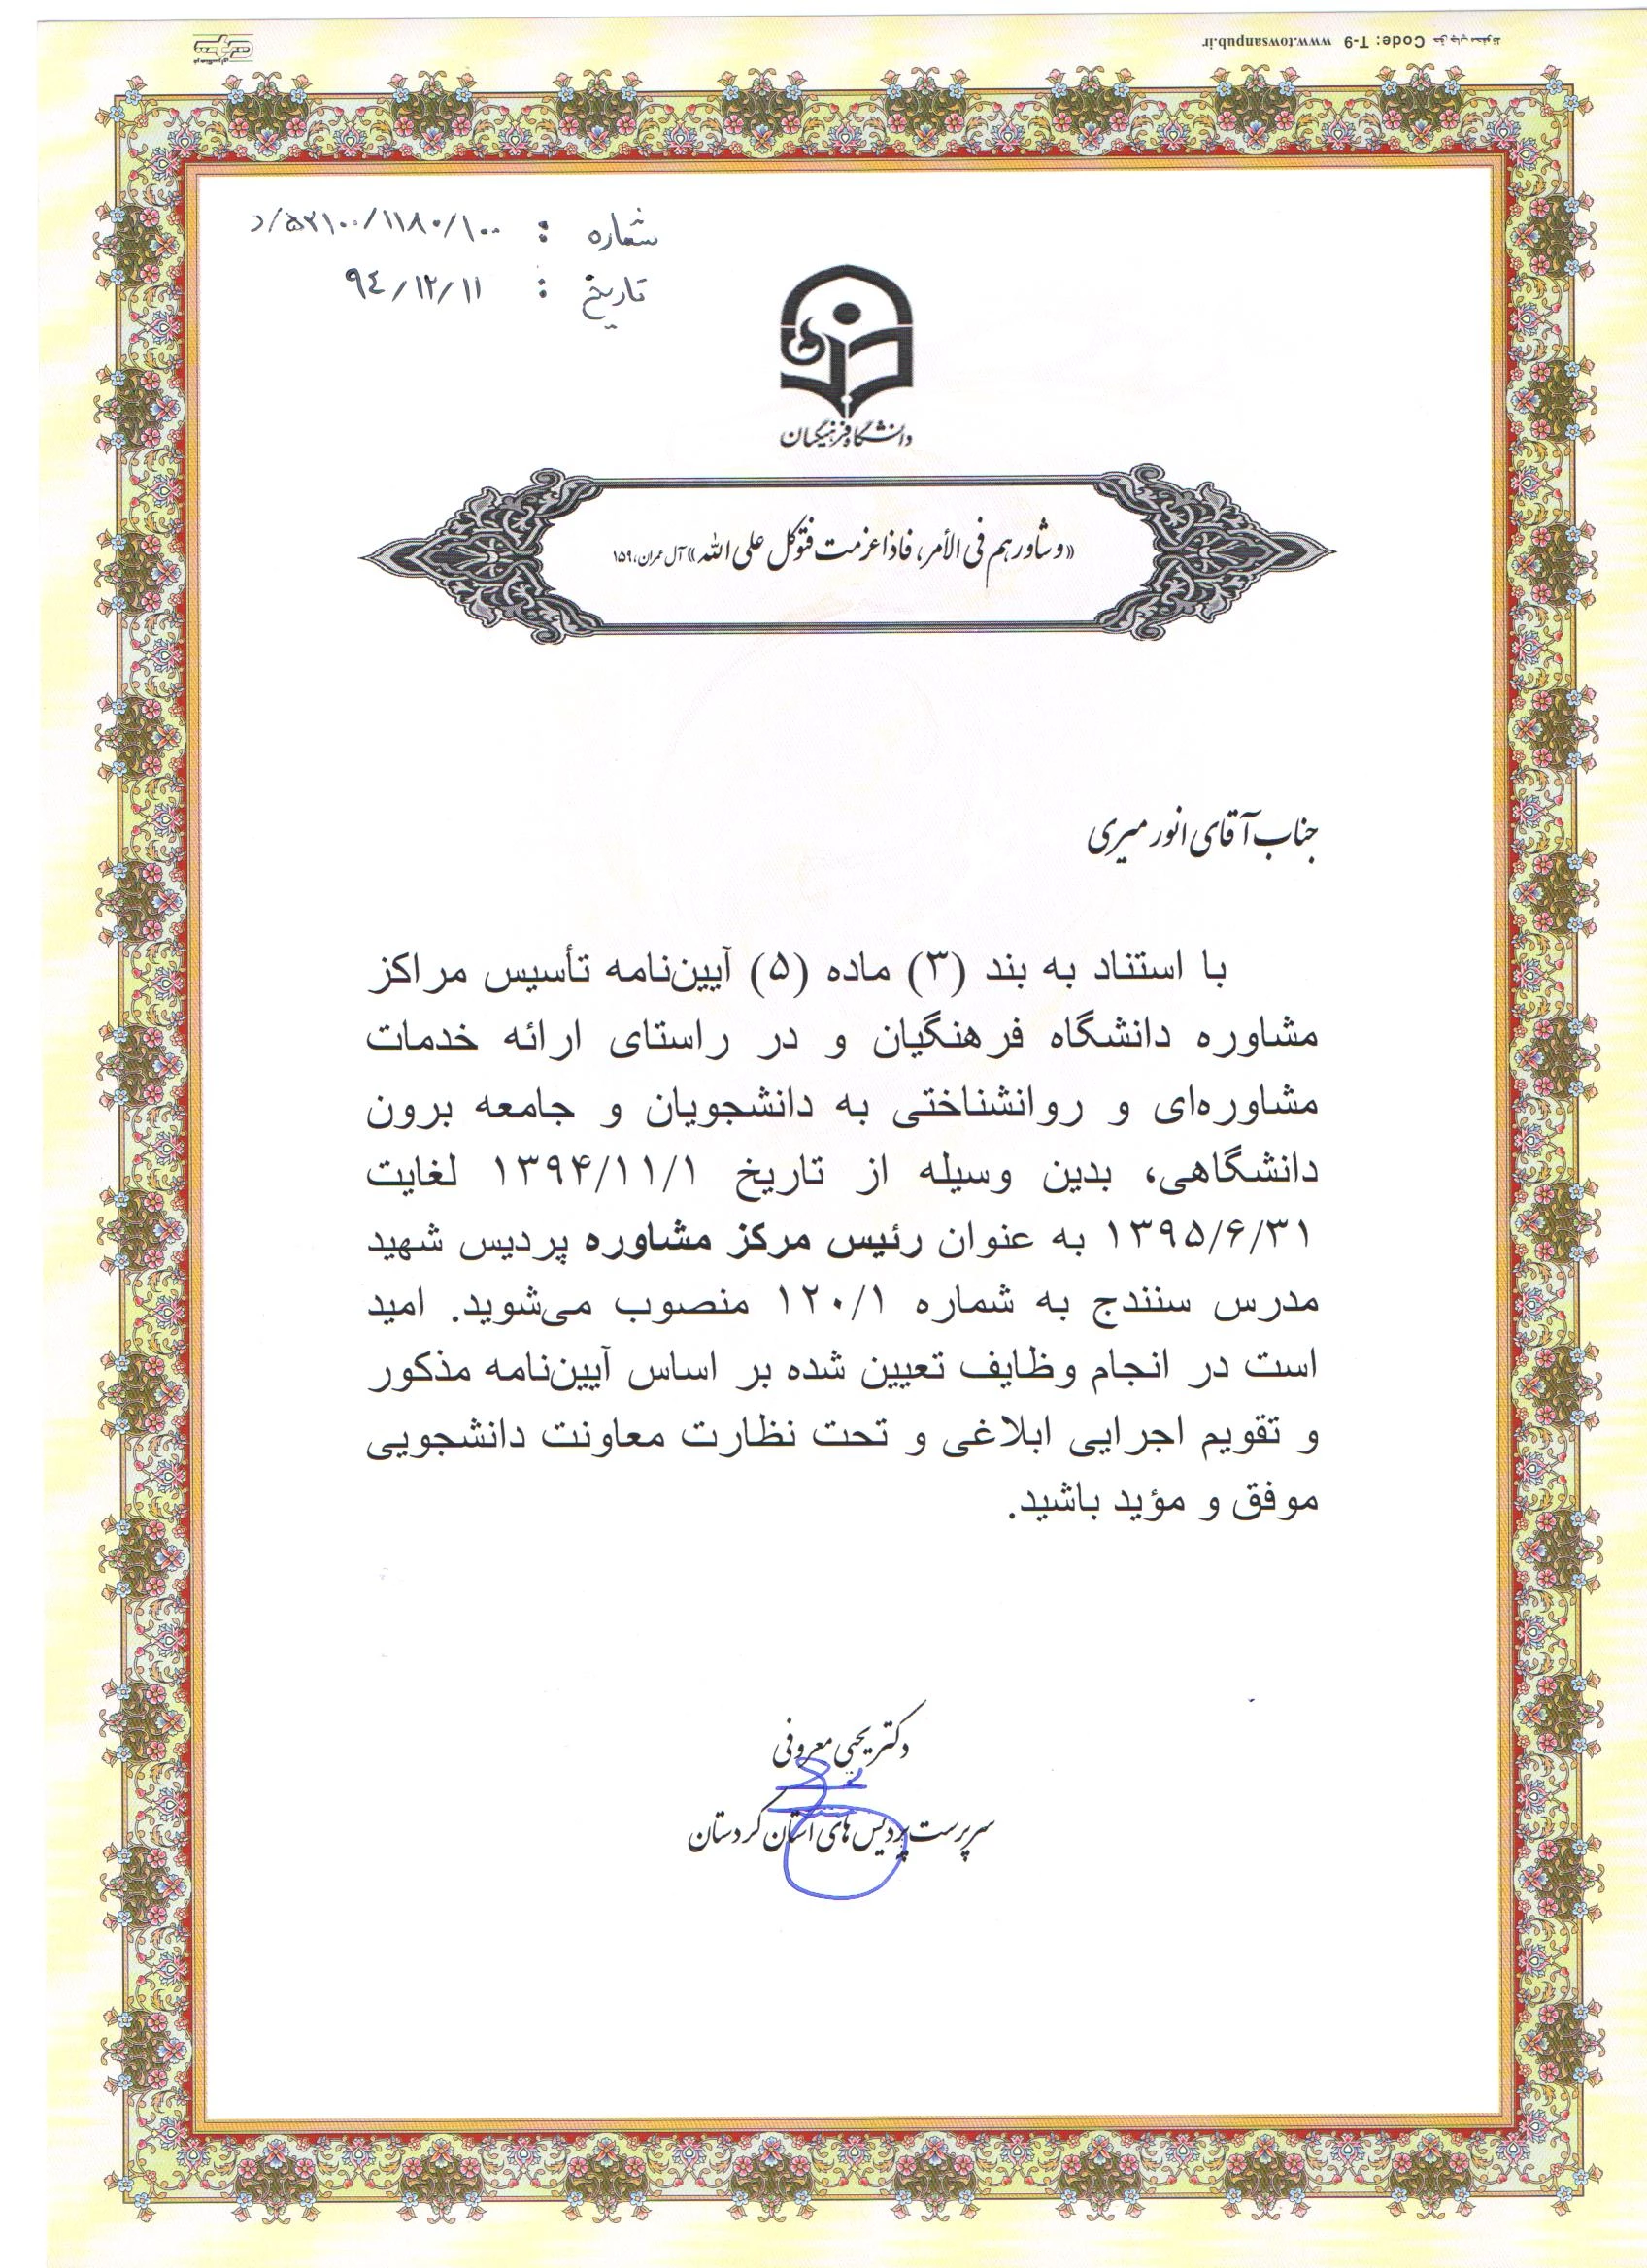 Code: T-9 www.towsanpub.ir
شماره : ۵۲۱۰۰/۱۱۸۰/۱۰۰/د
تاریخ : ۹٤/۱۲/۱۱
دانشگاه فرهنگیان
«وشاورهم فی الأمر، فاذا عزمت فتوکل علی الله» آل عمران، ۱۵۹
جناب آقای انور میری
با استناد به بند (۳) ماده (۵) آیین‌نامه تأسیس مراکز
مشاوره دانشگاه فرهنگیان و در راستای ارائه خدمات
مشاوره‌ای و روانشناختی به دانشجویان و جامعه برون
دانشگاهی، بدین وسیله از تاریخ ۱۳۹۴/۱۱/۱ لغایت
۱۳۹۵/۶/۳۱ به عنوان رئیس مرکز مشاوره پردیس شهید
مدرس سنندج به شماره ۱۲۰/۱ منصوب می‌شوید. امید
است در انجام وظایف تعیین شده بر اساس آیین‌نامه مذکور
و تقویم اجرایی ابلاغی و تحت نظارت معاونت دانشجویی
موفق و مؤید باشید.
دکتر یحیی معروفی
سرپرست پردیس های استان کردستان